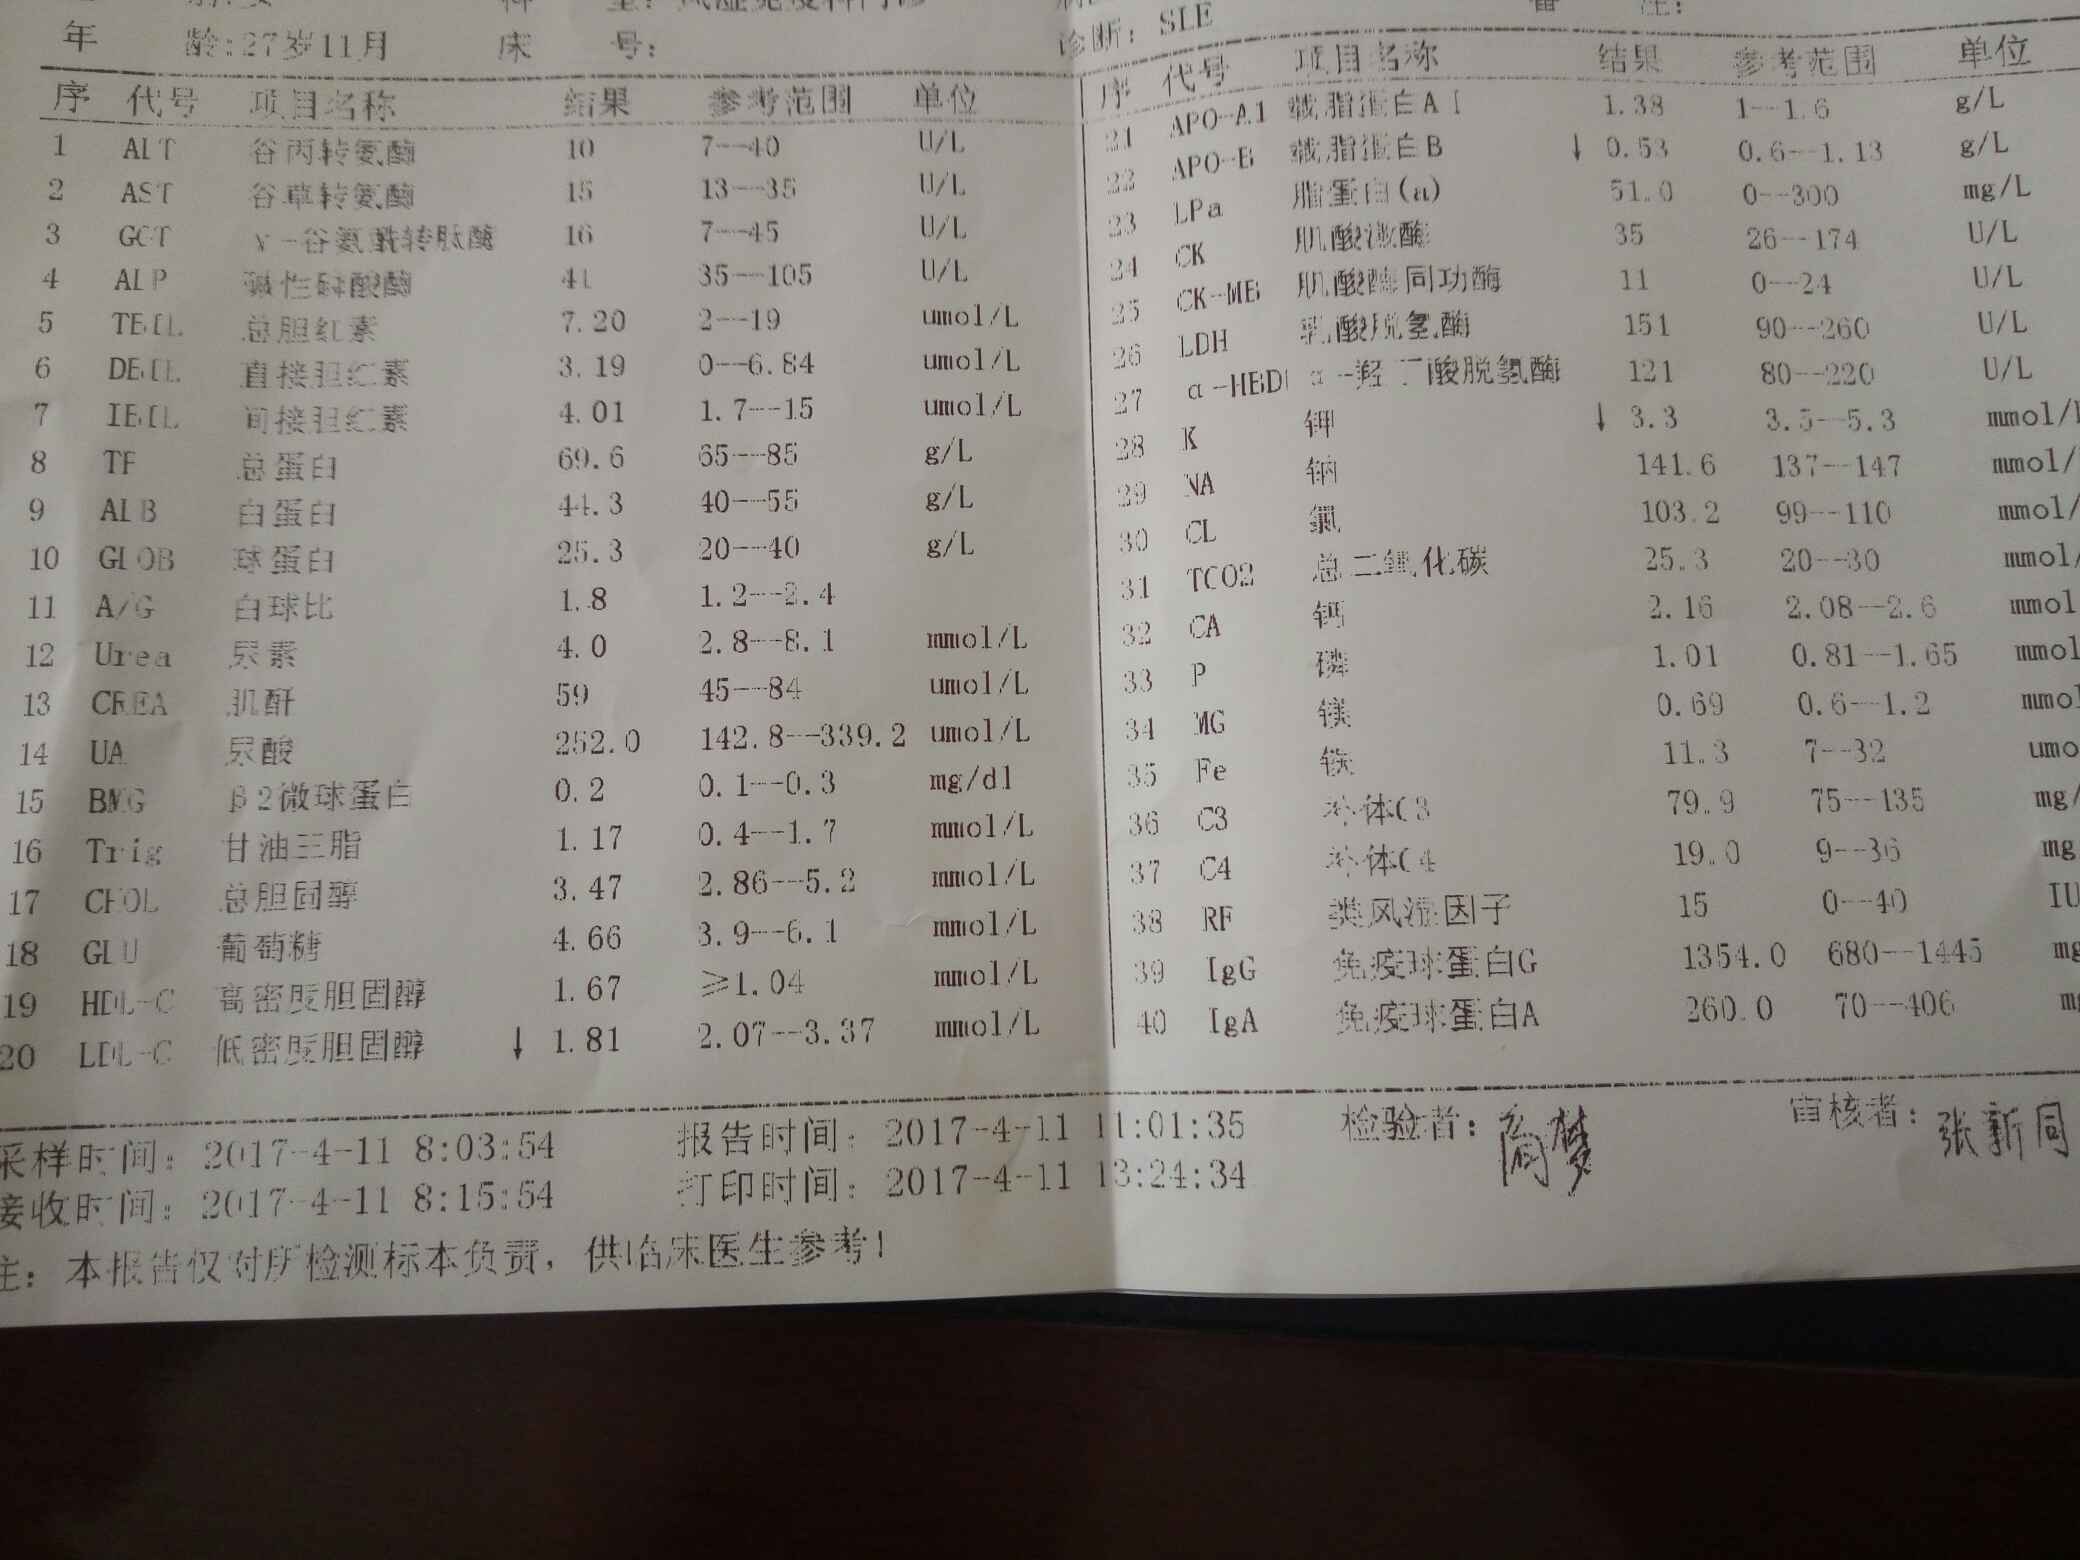 年 龄:27岁11月 床 号: 诊断: SLE
序 代号 项目名称 结果 参考范围 单位
1 ALT 谷丙转氨酶 10 7--40 U/L
2 AST 谷草转氨酶 15 13--35 U/L
3 GGT γ-谷氨酰转肽酶 16 7--45 U/L
4 ALP 碱性磷酸酶 41 35--105 U/L
5 TBIL 总胆红素 7.20 2--19 umol/L
6 DBIL 直接胆红素 3.19 0--6.84 umol/L
7 IBIL 间接胆红素 4.01 1.7--15 umol/L
8 TP 总蛋白 69.6 65--85 g/L
9 ALB 白蛋白 44.3 40--55 g/L
10 GLOB 球蛋白 25.3 20--40 g/L
11 A/G 白球比 1.8 1.2--2.4
12 Urea 尿素 4.0 2.8--8.1 mmol/L
13 CREA 肌酐 59 45--84 umol/L
14 UA 尿酸 252.0 142.8--339.2 umol/L
15 BMG β2微球蛋白 0.2 0.1--0.3 mg/dl
16 Trig 甘油三脂 1.17 0.4--1.7 mmol/L
17 CHOL 总胆固醇 3.47 2.86--5.2 mmol/L
18 GLU 葡萄糖 4.66 3.9--6.1 mmol/L
19 HDL-C 高密度胆固醇 1.67 ≥1.04 mmol/L
20 LDL-C 低密度胆固醇 ↓ 1.81 2.07--3.37 mmol/L
序 代号 项目名称 结果 参考范围 单位
21 APO-A1 载脂蛋白AI 1.38 1--1.6 g/L
22 APO-B 载脂蛋白B ↓ 0.53 0.6--1.13 g/L
23 LPa 脂蛋白(a) 51.0 0--300 mg/L
24 CK 肌酸激酶 35 26--174 U/L
25 CK-MB 肌酸酶同功酶 11 0--24 U/L
26 LDH 乳酸脱氢酶 151 90--260 U/L
27 α-HBD α-羟丁酸脱氢酶 121 80--220 U/L
28 K 钾 ↓ 3.3 3.5--5.3 mmol/L
29 NA 钠 141.6 137--147 mmol/
30 CL 氯 103.2 99--110 mmol/
31 TCO2 总二氧化碳 25.3 20--30 mmol/
32 CA 钙 2.16 2.08--2.6 mmol
33 P 磷 1.01 0.81--1.65 mmol
34 MG 镁 0.69 0.6--1.2 mmol
35 Fe 铁 11.3 7--32 umo
36 C3 补体C3 79.9 75--135 mg/
37 C4 补体C4 19.0 9--36 mg
38 RF 类风湿因子 15 0--40 IU
39 IgG 免疫球蛋白G 1354.0 680--1445 mg
40 IgA 免疫球蛋白A 260.0 70--406 m
采样时间: 2017-4-11 8:03:54 报告时间: 2017-4-11 11:01:35 检验者: 审核者: 张新同
接收时间: 2017-4-11 8:15:54 打印时间: 2017-4-11 13:24:34
注: 本报告仅对所检测标本负责, 供临床医生参考!